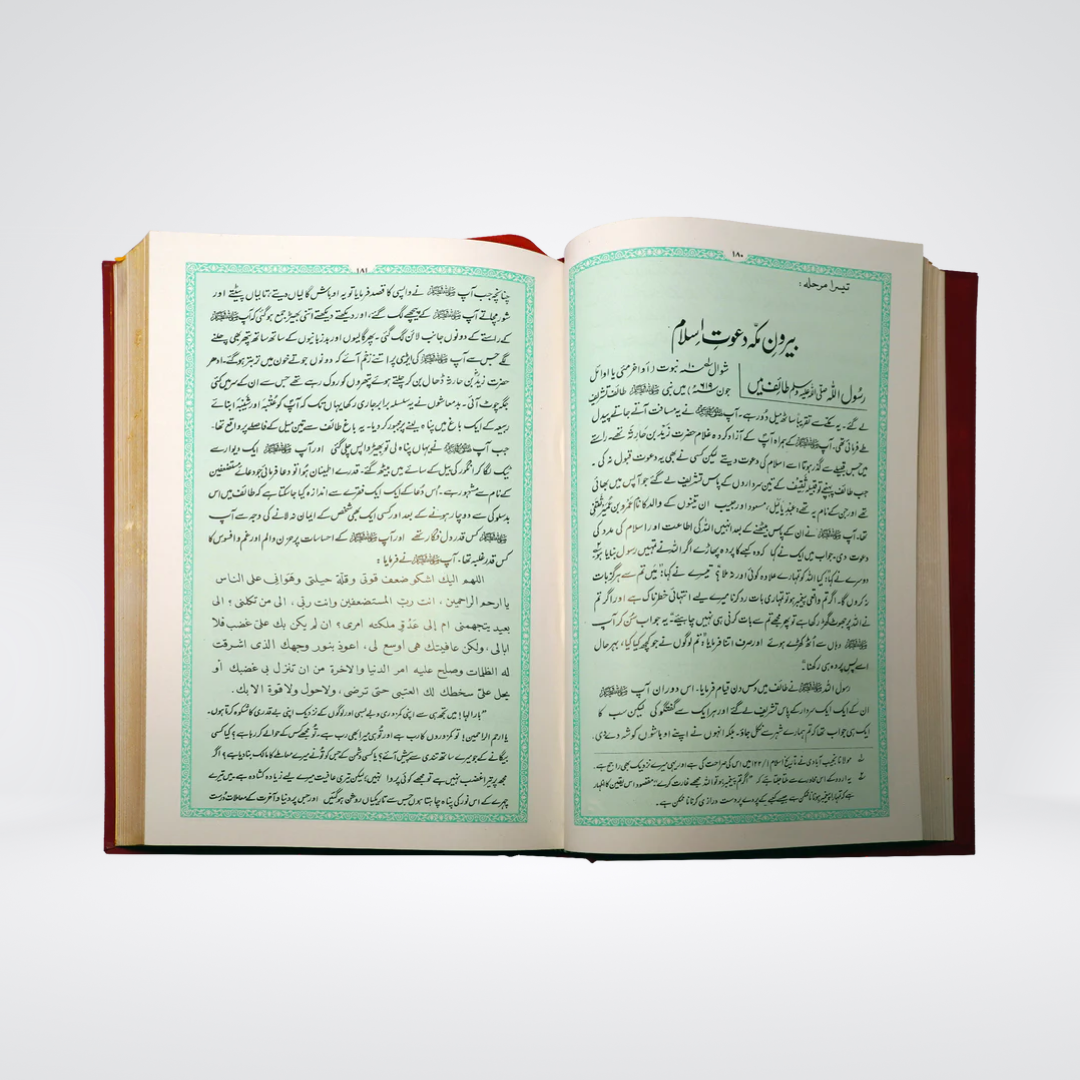 ۱۸۰
تیسرا مرحلہ:
بیرون مکّہ دعوتِ اسلام
رسُول اللہ صلی اللہ علیہ وسلم طائف میں
شوال ۱۰ نبوت (اواخر مئی یا اوائل
جون ۶۱۹ء) میں نبی ﷺ طائف تشریف
لے گئے۔ یہ مکے سے تقریباً ساٹھ میل دُور ہے۔ آپ ﷺ نے یہ مسافت آتے جاتے پیدل
طے فرمائی تھی۔ آپ ﷺ کے ہمراہ آپؐ کے آزاد کردہ غلام حضرت زیدؓ بن حارثہ تھے۔ راستے
میں جس قبیلے سے گذر ہوتا اسے اسلام کی دعوت دیتے لیکن کسی نے بھی یہ دعوت قبول نہ کی۔
جب طائف پہنچے تو قبیلہ ثقیف کے تین سرداروں کے پاس تشریف لے گئے جو آپس میں بھائی
تھے اور جن کے نام یہ تھے، عبد یالیل، مسعود اور حبیب ان تینوں کے والد کا نام عمرو بن عمیر ثقفی
تھا۔ آپ ﷺ نے ان کے پاس بیٹھنے کے بعد انہیں اللہ کی اطاعت اور اسلام کی مدد کی
دعوت دی۔ جواب میں ایک نے کہا کہ وہ کعبے کا پردہ پھاڑے اگر اللہ نے تمہیں رسول بنایا ہو
دوسرے نے کہا: کیا اللہ کو تمہارے علاوہ کوئی اور نہ ملا؟ تیسرے نے کہا: "میں تم سے ہرگز بات
نہ کروں گا۔ اگر تم واقعی پیغمبر ہو تو تمہاری بات رد کرنا میرے لیے انتہائی خطرناک ہے اور اگر تم
نے اللہ پر جھوٹ گھڑ رکھا ہے تو پھر مجھے تم سے بات کرنی ہی نہیں چاہیئے" یہ جواب سُن کر آپ
ﷺ وہاں سے اُٹھ کھڑے ہوئے اور صرف اتنا فرمایا "تم لوگوں نے جو کچھ کیا کیا، بہرحال
اسے پس پردہ ہی رکھنا۔"
رسول اللہ ﷺ نے طائف میں دس دن قیام فرمایا۔ اس دوران آپ ﷺ
ان کے ایک ایک سردار کے پاس تشریف لے گئے اور ہر ایک سے گفتگو کی لیکن سب کا
ایک ہی جواب تھا کہ تم ہمارے شہر سے نکل جاؤ۔ بلکہ انہوں نے اپنے اوباشوں کو شہ دے دی۔
مولانا نجیب آبادی نے تاریخ اسلام ۱/۱۲۲ میں اس کی صراحت کی ہے اور یہی میرے نزدیک بھی راجح ہے۔
یہ اردو کے اس محاورے سے ملتا جلتا ہے کہ "اگر تم پیغمبر ہو تو اللہ مجھے غارت کرے" مقصود اس یقین کا اظہار
ہے کہ تمہارا پیغمبر ہونا ناممکن ہے جیسے کعبے کے پردے پر دست درازی کرنا ناممکن ہے۔
۱۸۱
چنانچہ جب آپ ﷺ نے واپسی کا قصد فرمایا تو یہ اوباش گالیاں دیتے، تالیاں پیٹتے اور
شور مچاتے آپ ﷺ کے پیچھے لگ گئے، اور دیکھتے دیکھتے اتنی بھیڑ جمع ہو گئی کہ آپ ﷺ
کے راستے کے دونوں جانب لائن لگ گئی۔ پھر گالیوں اور بدزبانیوں کے ساتھ ساتھ پتھر بھی چلنے
لگے جس سے آپ ﷺ کی ایڑی پر اتنے زخم آئے کہ دونوں جوتے خون میں تربتر ہو گئے۔ ادھر
حضرت زیدؓ بن حارثہ ڈھال بن کر چلتے ہوئے پتھروں کو روک رہے تھے جس سے ان کے سر میں کئی
جگہ چوٹ آئی۔ بدمعاشوں نے یہ سلسلہ برابر جاری رکھا یہاں تک کہ آپؐ کو عُتبہ اور شَیبہ ابنائے
ربیعہ کے ایک باغ میں پناہ لینے پر مجبور کر دیا۔ یہ باغ طائف سے تین میل کے فاصلے پر واقع تھا۔
جب آپ ﷺ نے یہاں پناہ لی تو بھیڑ واپس چلی گئی اور آپ ﷺ ایک دیوار سے
ٹیک لگا کر انگور کی بیل کے سائے میں بیٹھ گئے۔ قدرے اطمینان ہوا تو دعا فرمائی جو دعائے مستضعفین
کے نام سے مشہور ہے۔ اُس دُعا کے ایک ایک فقرے سے اندازہ کیا جا سکتا ہے کہ طائف میں اس
بدسلوکی سے دوچار ہونے کے بعد اور کسی ایک بھی شخص کے ایمان نہ لانے کی وجہ سے آپ
ﷺ کس قدر دل فگار تھے اور آپ ﷺ کے احساسات پر حزن و الم اور غم و افسوس کا
کس قدر غلبہ تھا۔ آپ ﷺ نے فرمایا:
اللهم اليك اشكو ضعف قوتى وقلة حيلتى وهوانى على الناس
يا ارحم الراحمين، انت ربّ المستضعفين وانت ربى، الى من تكلنى؟ الى
بعيد يتجهمنى ام الى عدو ملكته امرى؟ ان لم يكن بك علىّ غضب فلا
ابالى، ولكن عافيتك هى اوسع لى، اعوذ بنور وجهك الذى اشرقت
له الظلمات وصلح عليه امر الدنيا والاخرة من ان تنزل بى غضبك أو
يحل علىّ سخطك لك العتبى حتى ترضى، ولا حول ولا قوة الا بك.
"بارالٰہا! میں تجھ ہی سے اپنی کمزوری و بے بسی اور لوگوں کے نزدیک اپنی بے قدری کا شکوہ کرتا ہوں۔
یا ارحم الراحمین! تو کمزوروں کا رب ہے اور تو ہی میرا بھی رب ہے۔ تو مجھے کس کے حوالے کر رہا ہے؟ کیا کسی
بیگانے کے جو میرے ساتھ تندی سے پیش آئے؟ یا کسی دشمن کے جس کو تو نے میرے معاملے کا مالک بنا دیا ہے؟ اگر
مجھ پر تیرا غضب نہیں ہے تو مجھے کوئی پروا نہیں؛ لیکن تیری عافیت میرے لیے زیادہ کشادہ ہے۔ میں تیرے
چہرے کے اس نور کی پناہ چاہتا ہوں جس سے تاریکیاں روشن ہو گئیں اور جس پر دنیا و آخرت کے معاملات درست